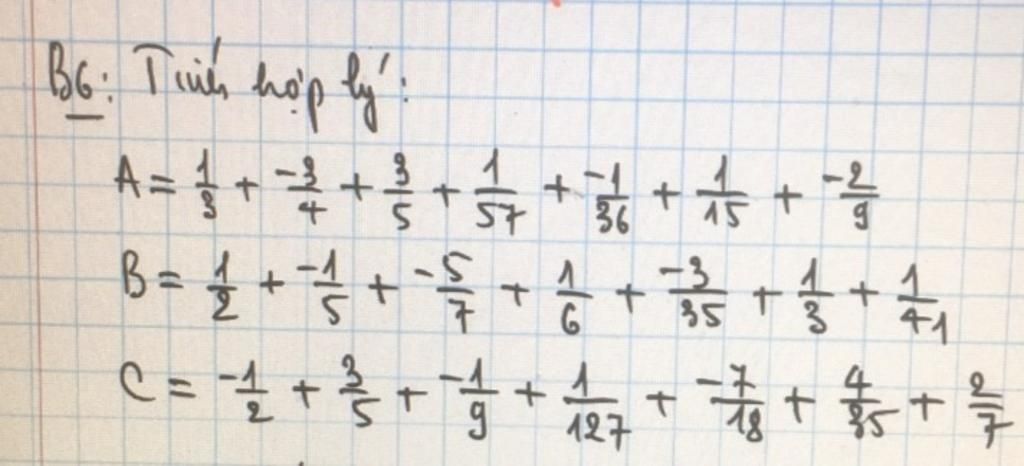 B6: Tính hợp lý:
A = 1/3 + -3/4 + 3/5 + 1/57 + -1/36 + 1/15 + -2/9
B = 1/2 + -1/5 + -5/7 + 1/6 + -3/35 + 1/3 + 1/41
C = -1/2 + 3/5 + -1/9 + 1/127 + -7/18 + 4/35 + 2/7